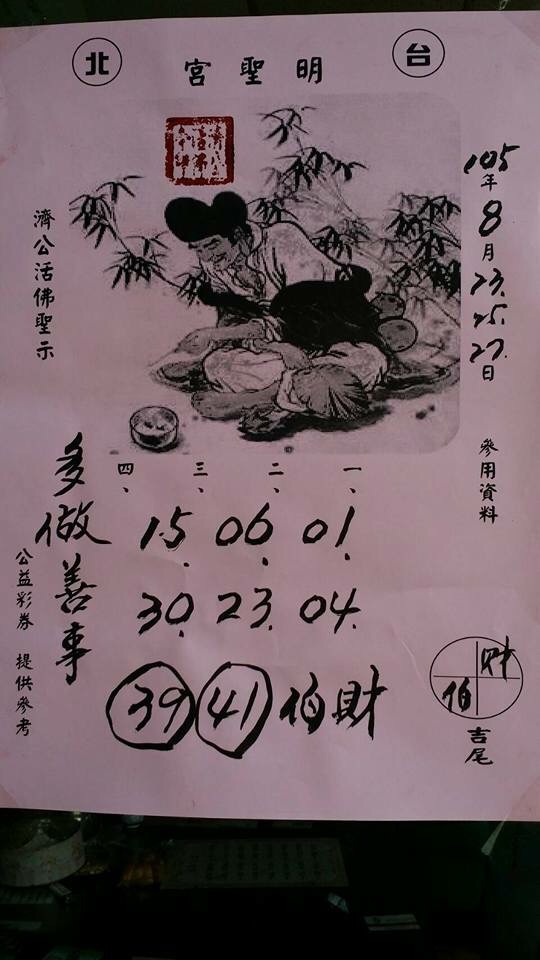 台北
明聖宮
105年8月23.25.27.日
參用資料
濟公活佛聖示
一、
二、
三、
四、
01.
06.
15.
04.
23.
30.
財伯
41
39
多做善事
公益彩券 提供參考
財
伯
吉尾